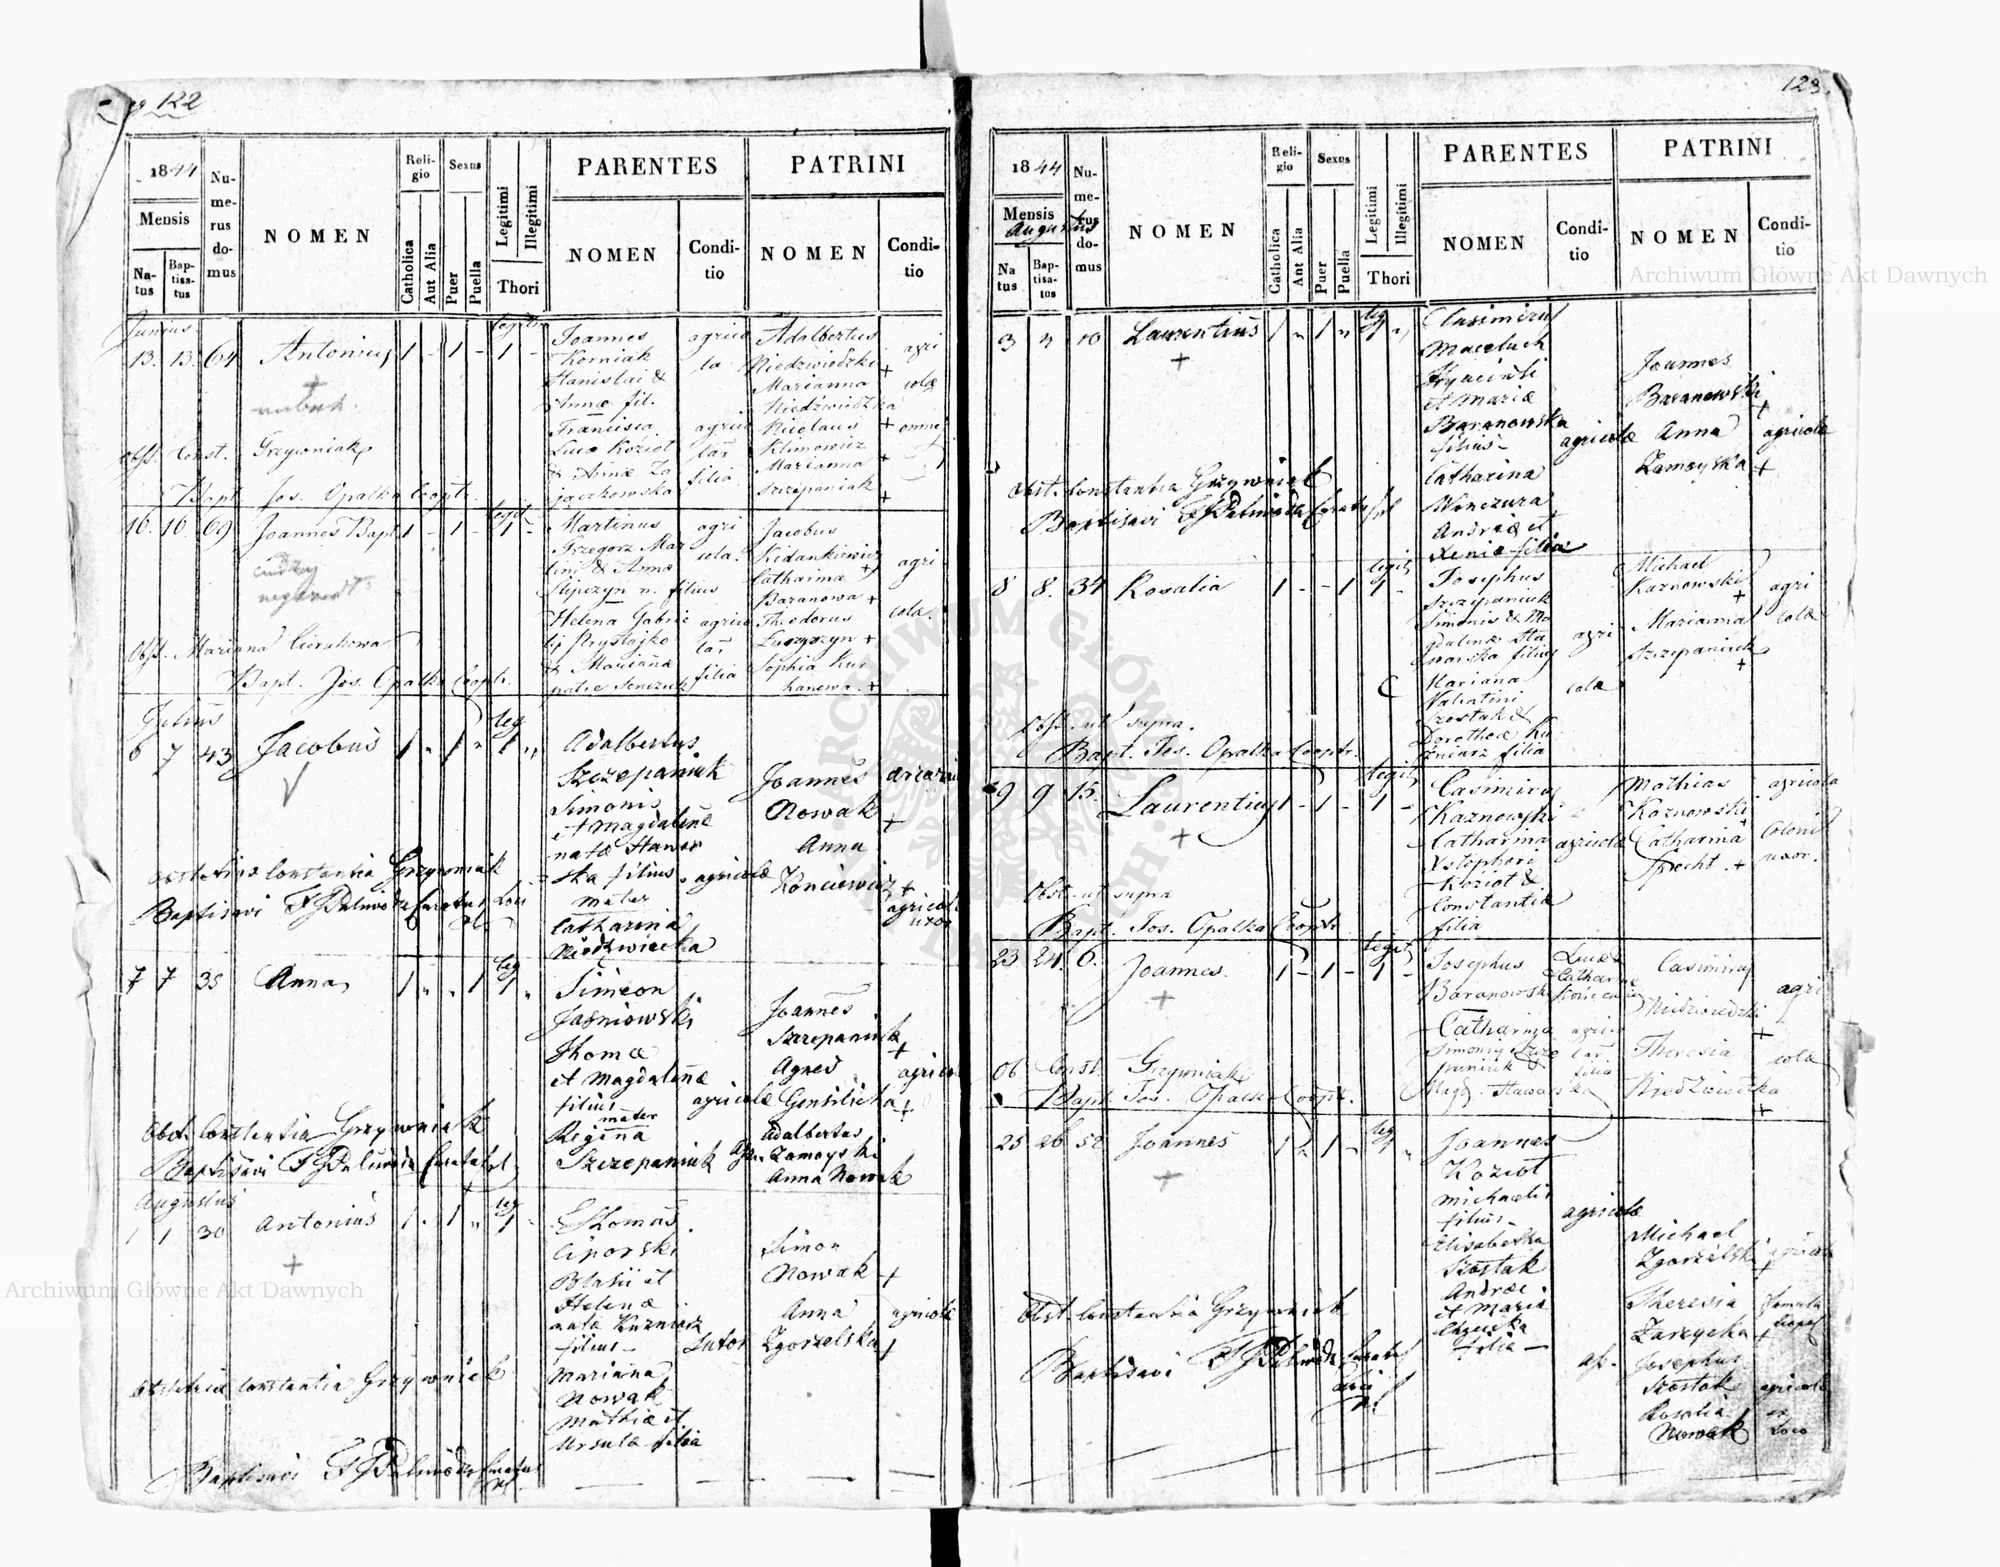 122
1844
Mensis
Na-
tus
Bap-
tisa-
tus
Nu-
me-
rus
do-
mus
NOMEN
Reli-
gio
Catholica
Aut Alia
Sexus
Puer
Puella
Legitimi
Illegitimi
Thori
PARENTES
NOMEN
Condi-
tio
PATRINI
NOMEN
Condi-
tio
Junius
13. 13. 64 Antonius 1 - 1 - 1 -
legit
Joannes
Korniak
Stanislai &
Annæ fil.
Francisca
Luca Kozioł
& Annæ Za
jączkowska
agrico
la
agrico
filia
Adalbertus
Niedzwiedzki +
Marianna
Niedzwiedzka
Nicolaus +
Klimowicz
Marianna +
Szczepaniak +
agri
colæ
omnes
Obst. Const. Grzywniak
Bapt. Jos. Opalka Cooptr.
16. 16. 69 Joannes Bapt. 1 - 1 - 1 -
legit
Martinus
Grzegorz Mar
tini & Annæ
filius
Helena Gabrie
lis Prystajko
& Marianna
agri
cola.
agrico
filia
Jacobus
Catharina +
Baranowa +
Theodorus
Sophia Kur
agri
colæ
Obst. Mariana
Bapt. Jos. Opalka Cooptr.
Julius
6 7 43 Jacobus 1 " 1 " 1 "
leg
Adalbertus
Szczepaniak
Simonis
et Magdalenæ
natæ Hawar
ska filius
mater
Catharina
Niedzwiecka
agricolæ
Joannes
Nowak +
Anna
Konciewicz +
agricolæ
uxor
obstetrix Constantia Grzywniak
Baptisavi Curatus Loci
7 7 35 Anna 1 " " 1 1 "
leg
Simeon
Jaśniowski
Thomæ
et Magdalenæ
filius
mater
Regina
Szczepaniak
agricolæ
Joannes
Szczepaniak +
Agnes
Gensilicha +
Adalbertus
Zamoyski
Anna Nowak
Obst. Constantia Grzywniak
Baptisavi
Augustus
1 1 30 Antonius 1 " 1 " 1 -
leg
Thomas
Ciporski
Blasii et
Helenæ
natæ Kuzniarz
filius -
Mariana
Nowak
Mathiæ et
Ursulæ filia
Sutor
Simon
Nowak +
Anna
Zgorzelska +
agricolæ
obstetrix Constantia Grzywniak
Baptisavi
123.
1844
Mensis
Augustus
Na
tus
Bap-
tisa-
tus
Nu-
me-
rus
do-
mus
NOMEN
Reli-
gio
Catholica
Aut Alia
Sexus
Puer
Puella
Legitimi
Illegitimi
Thori
PARENTES
NOMEN
Condi-
tio
PATRINI
NOMEN
Condi-
tio
3 10 Laurentius 1 " 1 " 1 "
leg
Casimirus
Maceluch
Hyacinti
et Mariæ
Baranowska
filius -
Catharina
Wenczura
Andreæ et
Xenia filia
agricolæ
Joannes
Baranowski +
Anna
Zamoyska +
agricolæ
Obst. Constantia Grzywniak
Baptisavi
8 8. 34 Rosalia 1 - - 1 1 -
legit
Josephus
Szczepaniak
Simonis & Ma
gdalenæ Ha
warska filius
Mariana
Valentini
Szostak &
Dorotheæ Ku
zniarz filia
agri
colæ
Michael
Kaznowski +
Marianna
Szczepaniak +
agri
colæ
Obst. ut supra.
Bapt. Jos. Opalka Cooptr.
9 9 15. Laurentius 1 - 1 - 1 -
legit
Casimirus
Kaznowski
Catharina
Xstophori
Kozioł &
Constantiæ
filia
agricolæ
Mathias
Kaznowski
Catharina
Specht. +
agricola
Coloni
uxor.
Obst. ut supra
Bapt. Jos. Opalka Cooptr.
23 24. 6. Joannes. 1 - 1 - 1 -
legit
Josephus
Baranowski
Catharina
Simonis Szcze
paniak &
Magd. Hawarska
Lucæ &
Catharinæ
agrico
filia
Casimirus
Niedzwiedzki +
Theresia
Niedzwiedzka +
agri
colæ
Ob Const. Grzywniak
Bapt. Jos. Opalka Cooptr.
25 26 52 Joannes 1 " 1 - 1 "
leg
Joannes
Kozioł
Michaelis
filius -
Elisabetha
Szostak
Andreæ
et Maria
filia -
agricolæ
Michael
Zgorzelski +
Theresia
Zarzycka +
ass. Josephus
Szostak
Rosalia
Nowak
agricolæ
famula
agricolæ
ex
Loco
Obst. Constantia Grzywniak
Baptisavi
Archiwum Główne Akt Dawnych
Archiwum Główne Akt Dawnych
ARCHIWUM GŁÓWNE AKT DAWNYCH